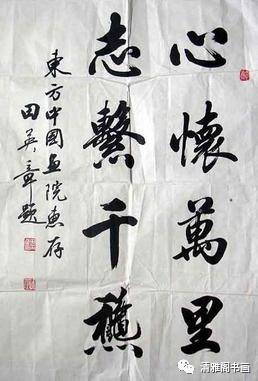 心懷萬里
志繫千龝
東方中國画院惠存
田英章題
清雅阁书画